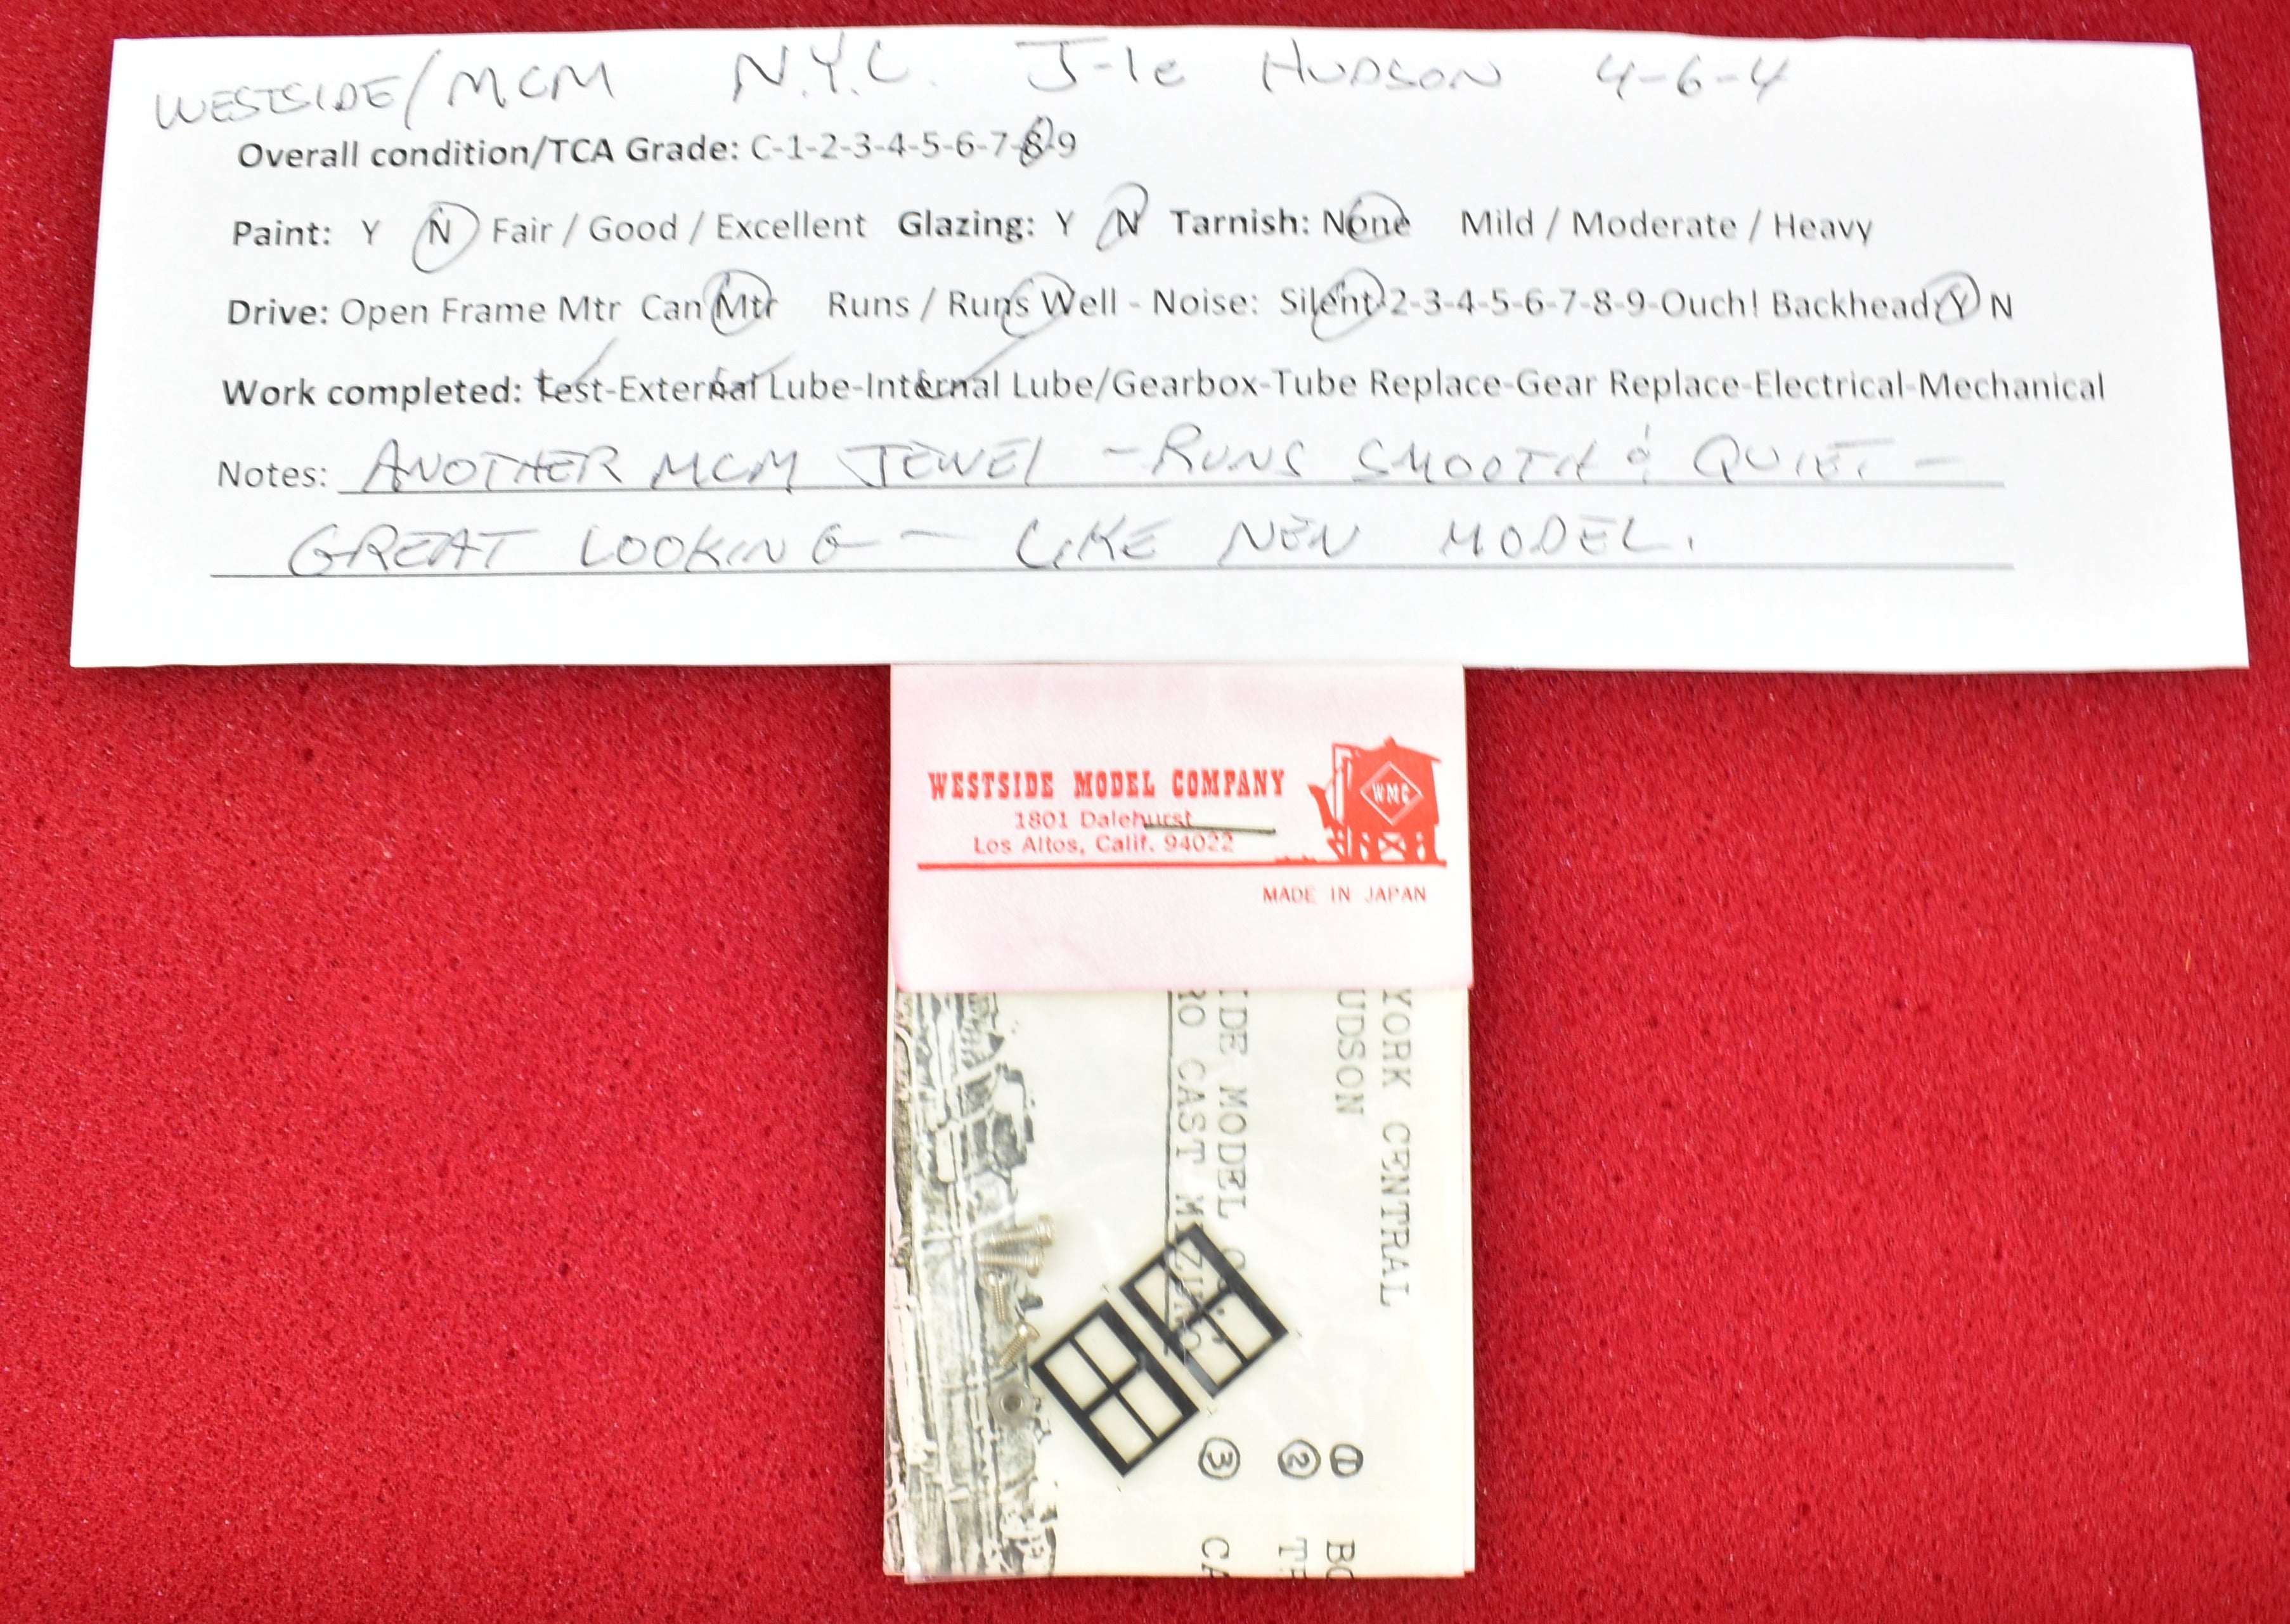 WESTSIDE/MCM N.Y.C. J-1e HUDSON 4-6-4
Overall condition/TCA Grade: C-1-2-3-4-5-6-7-8-9
Paint: Y N Fair / Good / Excellent Glazing: Y N Tarnish: None Mild / Moderate / Heavy
Drive: Open Frame Mtr Can Mtr Runs / Runs Well - Noise: Silent-2-3-4-5-6-7-8-9-Ouch! Backhead: Y N
Work completed: test-External Lube-Internal Lube/Gearbox-Tube Replace-Gear Replace-Electrical-Mechanical
Notes: ANOTHER MCM JEWEL - RUNS SMOOTH & QUIET -
GREAT LOOKING - LIKE NEW MODEL.
WESTSIDE MODEL COMPANY
WMC
1801 Dalehurst
Los Altos, Calif. 94022
MADE IN JAPAN
YORK CENTRAL
UDSON
IDE MODEL
RO CAST
① BO
②
③ CA